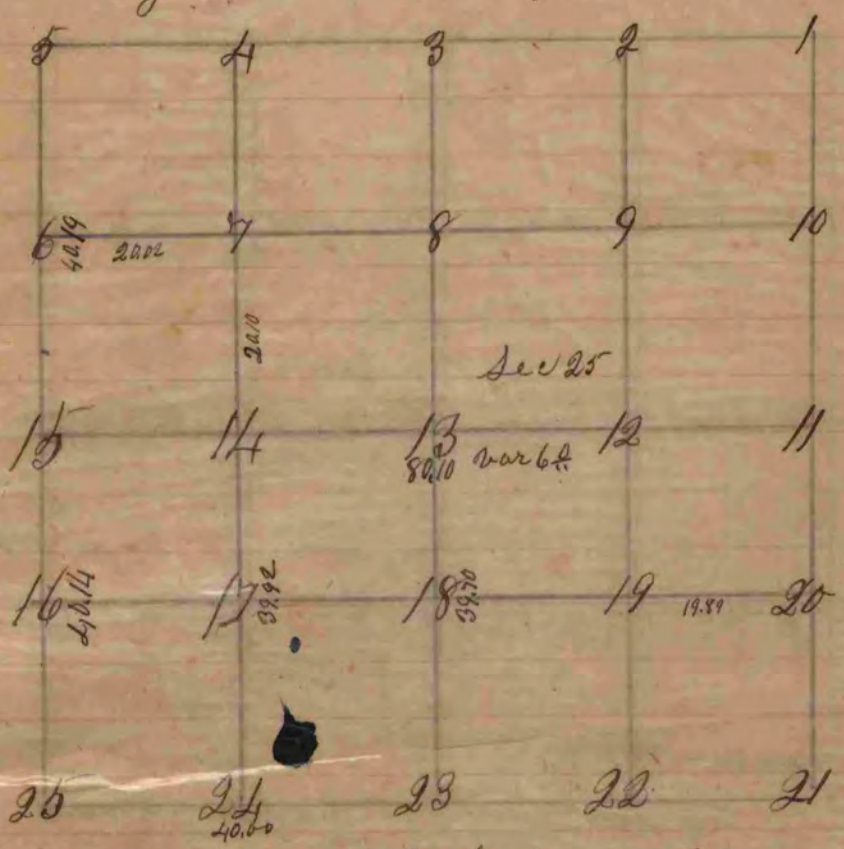 5 4 3 2 1
6 40.19 20.02 7 8 9 10
20.10
Sec 25
15 14 13 12 11
80.10 var 6
16 40.14 17 39.92 18 39.90 19 19.89 20
25 24 23 22 21
40.00